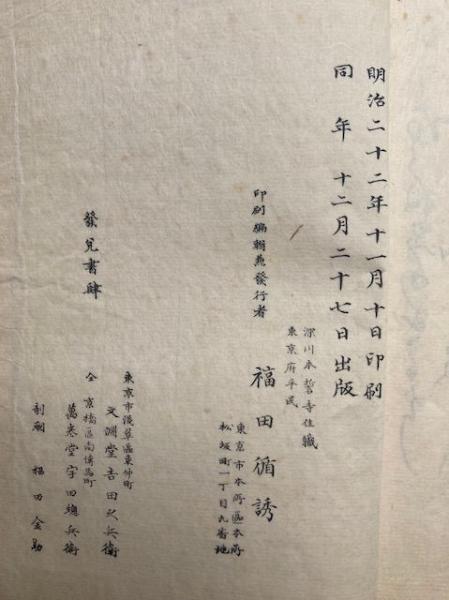 明治二十二年十一月十日印刷
同年十二月二十七日出版
深川本誓寺住職
東京府平民
印刷編輯兼發行者
福田循誘
東京市本所區本所
松坂町一丁目九番地
發兌書肆
東京市淺草區東仲町
文淵堂吉田久兵衛
仝京橋區南傳馬町
萬卷堂宇田總兵衛
剞劂 福田金助